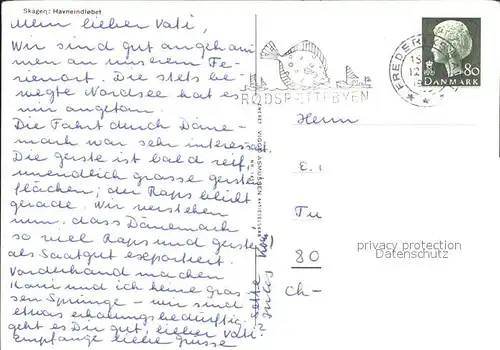 Skagen: Havneindløbet
Mein lieber Vati,
Wir sind gut angekom-
men an unserem Fe-
rienort. Die stets be-
wegte Nordsee hat es
mir angetan.
Die Fahrt durch Däne-
mark war sehr interessant.
Die Gerste ist bald reif,
unendlich grosse Gersten-
flächen; der Raps blüht
gerade. Wir verstehen
nun, dass Dänemark
so viel Raps und Gerste
als Saatgut exportiert.
Vorderhand machen
und ich keine gros-
sen Sprünge – wir sind
etwas erholungsbedürftig.
geht es Dir gut, lieber Vati?
Empfange liebe Grüsse
RØDSPÆTTEBYEN
80
DANMARK
Herrn
E.
Tu
80
CH-
privacy protection
watermark
Datenschutz